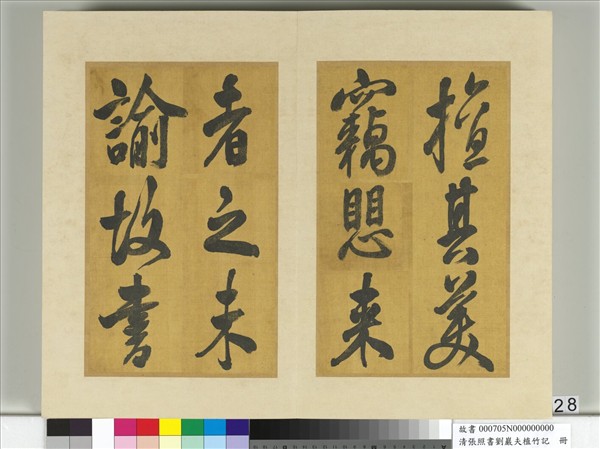 擅其美
竊愳來
者之未
諭故書
28
故書 000705N000000000
清張照書劉巖夫植竹記 冊